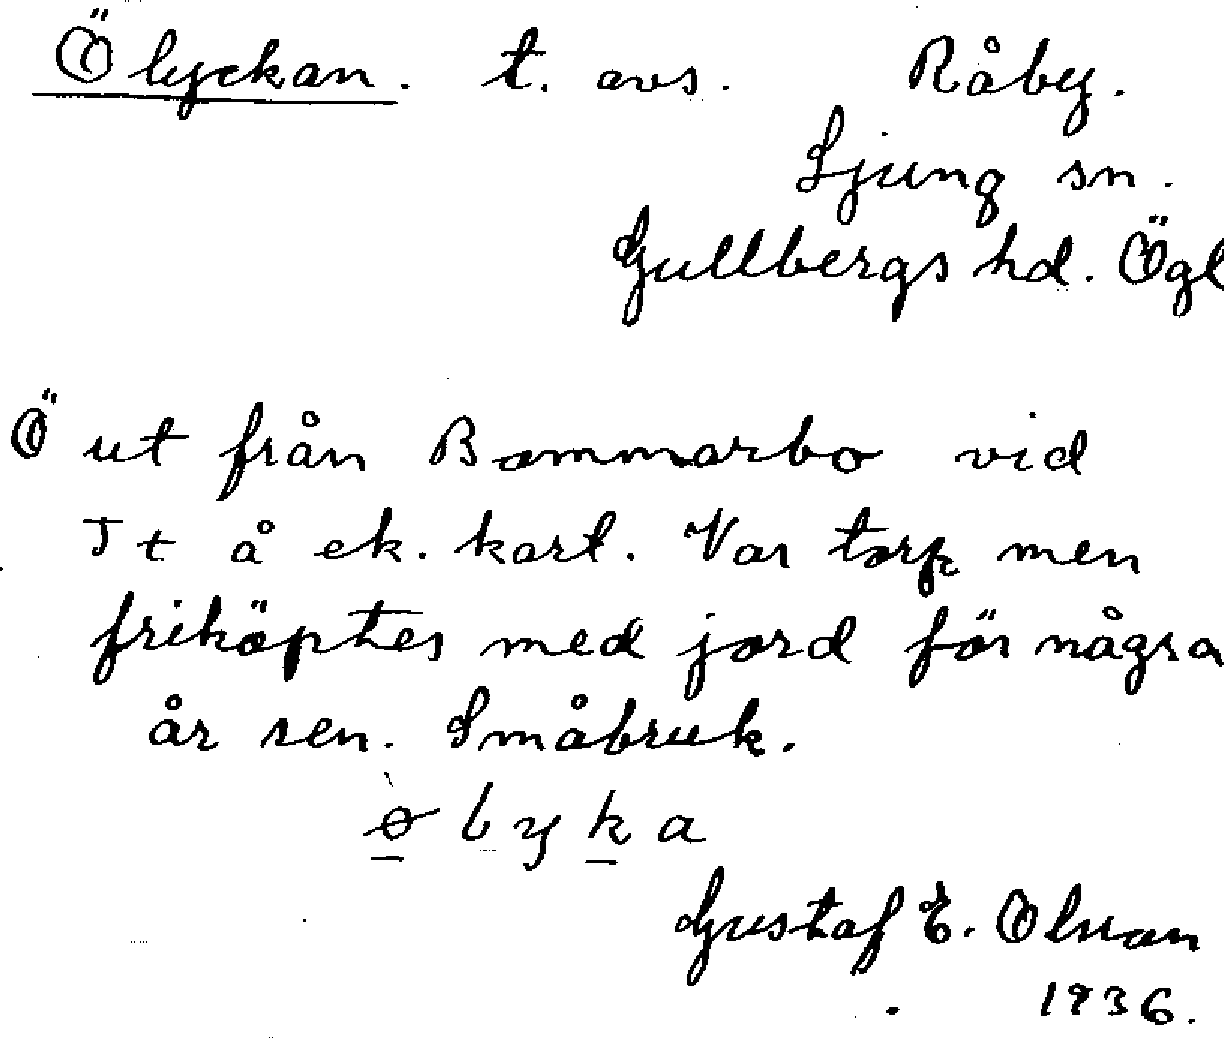 Ölyckan. t. avs. Råby.
Ljung sn.
Gullbergs hd. Ögl
Ö ut från Bommarbo vid
Tt å ek. kart. Var torp men
friköptes med jord för några
år sen. Småbruk.
ø lyka
Gustaf E. Olsson
1936.